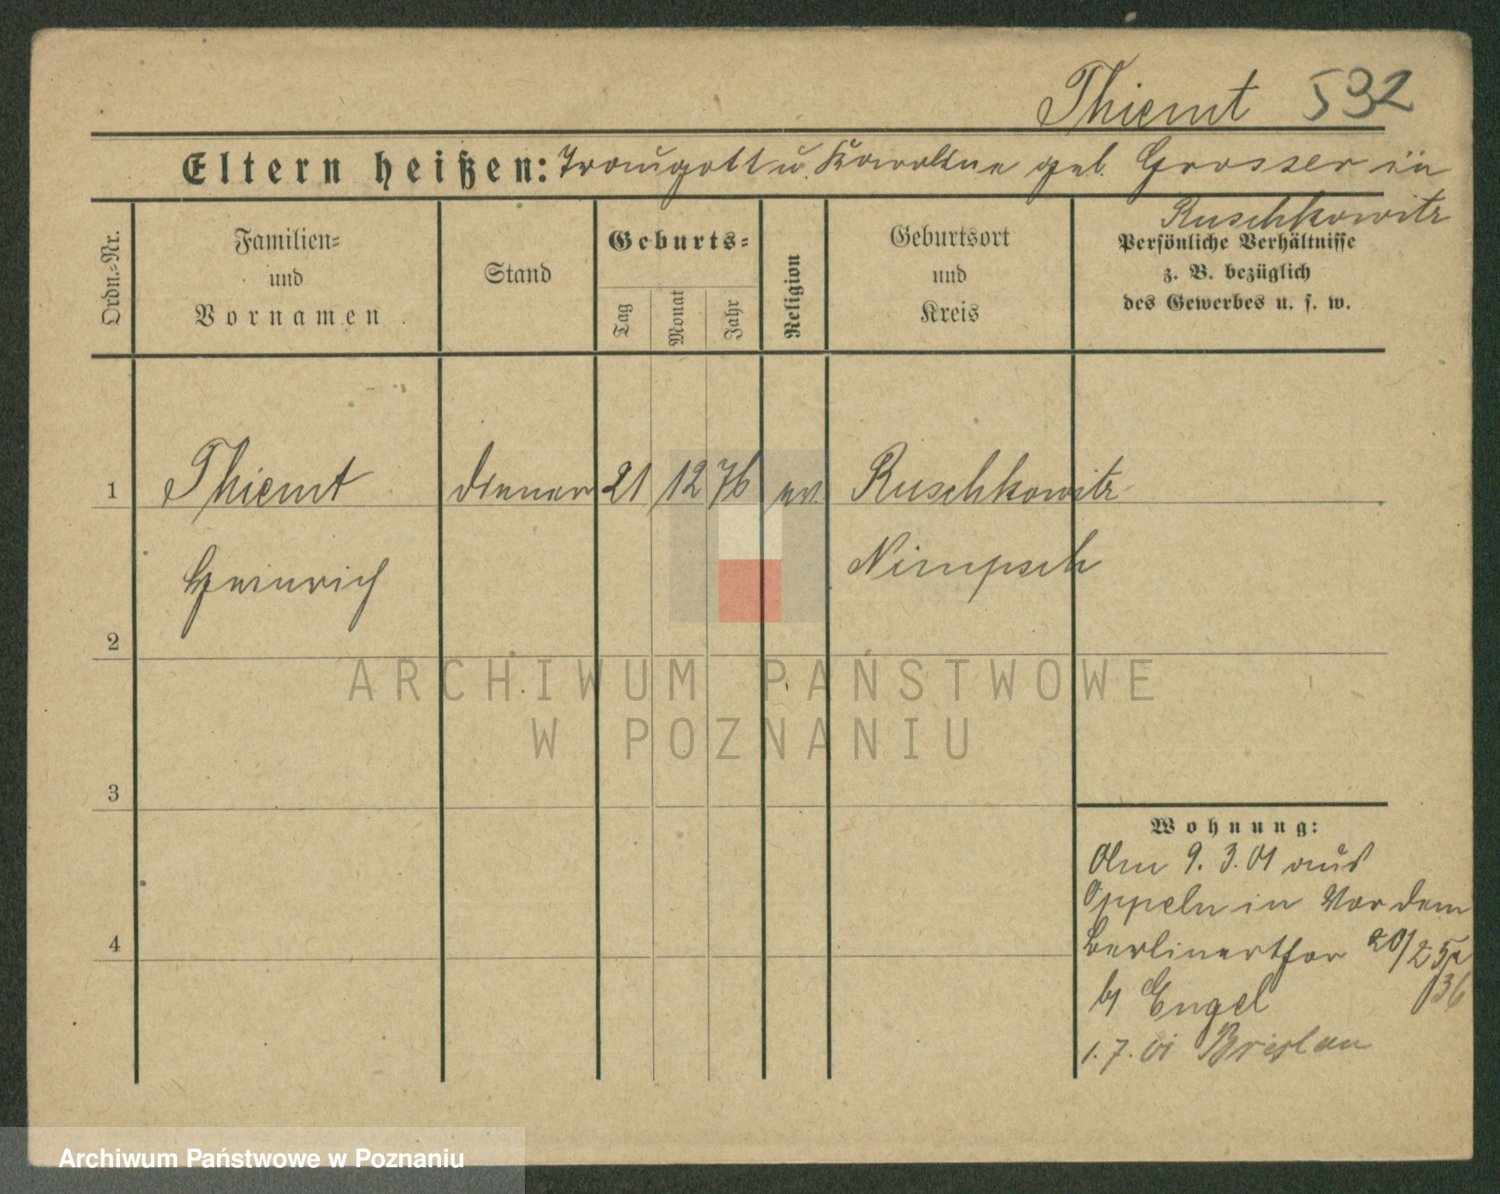 Thiemt 532
Eltern heißen: Traugott u. Karoline geb. Grosser in
Ruschkowitz
Ordn.-Nr.
Familien-
und
Vornamen
Stand
Geburts-
Tag
Monat
Jahr
Religion
Geburtsort
und
Kreis
Persönliche Verhältnisse
z. B. bezüglich
des Gewerbes u. s. w.
1 Thiemt Diener 21 12 76 ev. Ruschkowitz
Heinrich Nimpsch
2
3
4
Wohnung:
Am 9. 3. 01 aus
Oppeln in Vor dem
Berlinerthor 20/25a
b/ Engel 36
1. 7. 01 Breslau
ARCHIWUM PAŃSTWOWE
W POZNANIU
Archiwum Państwowe w Poznaniu